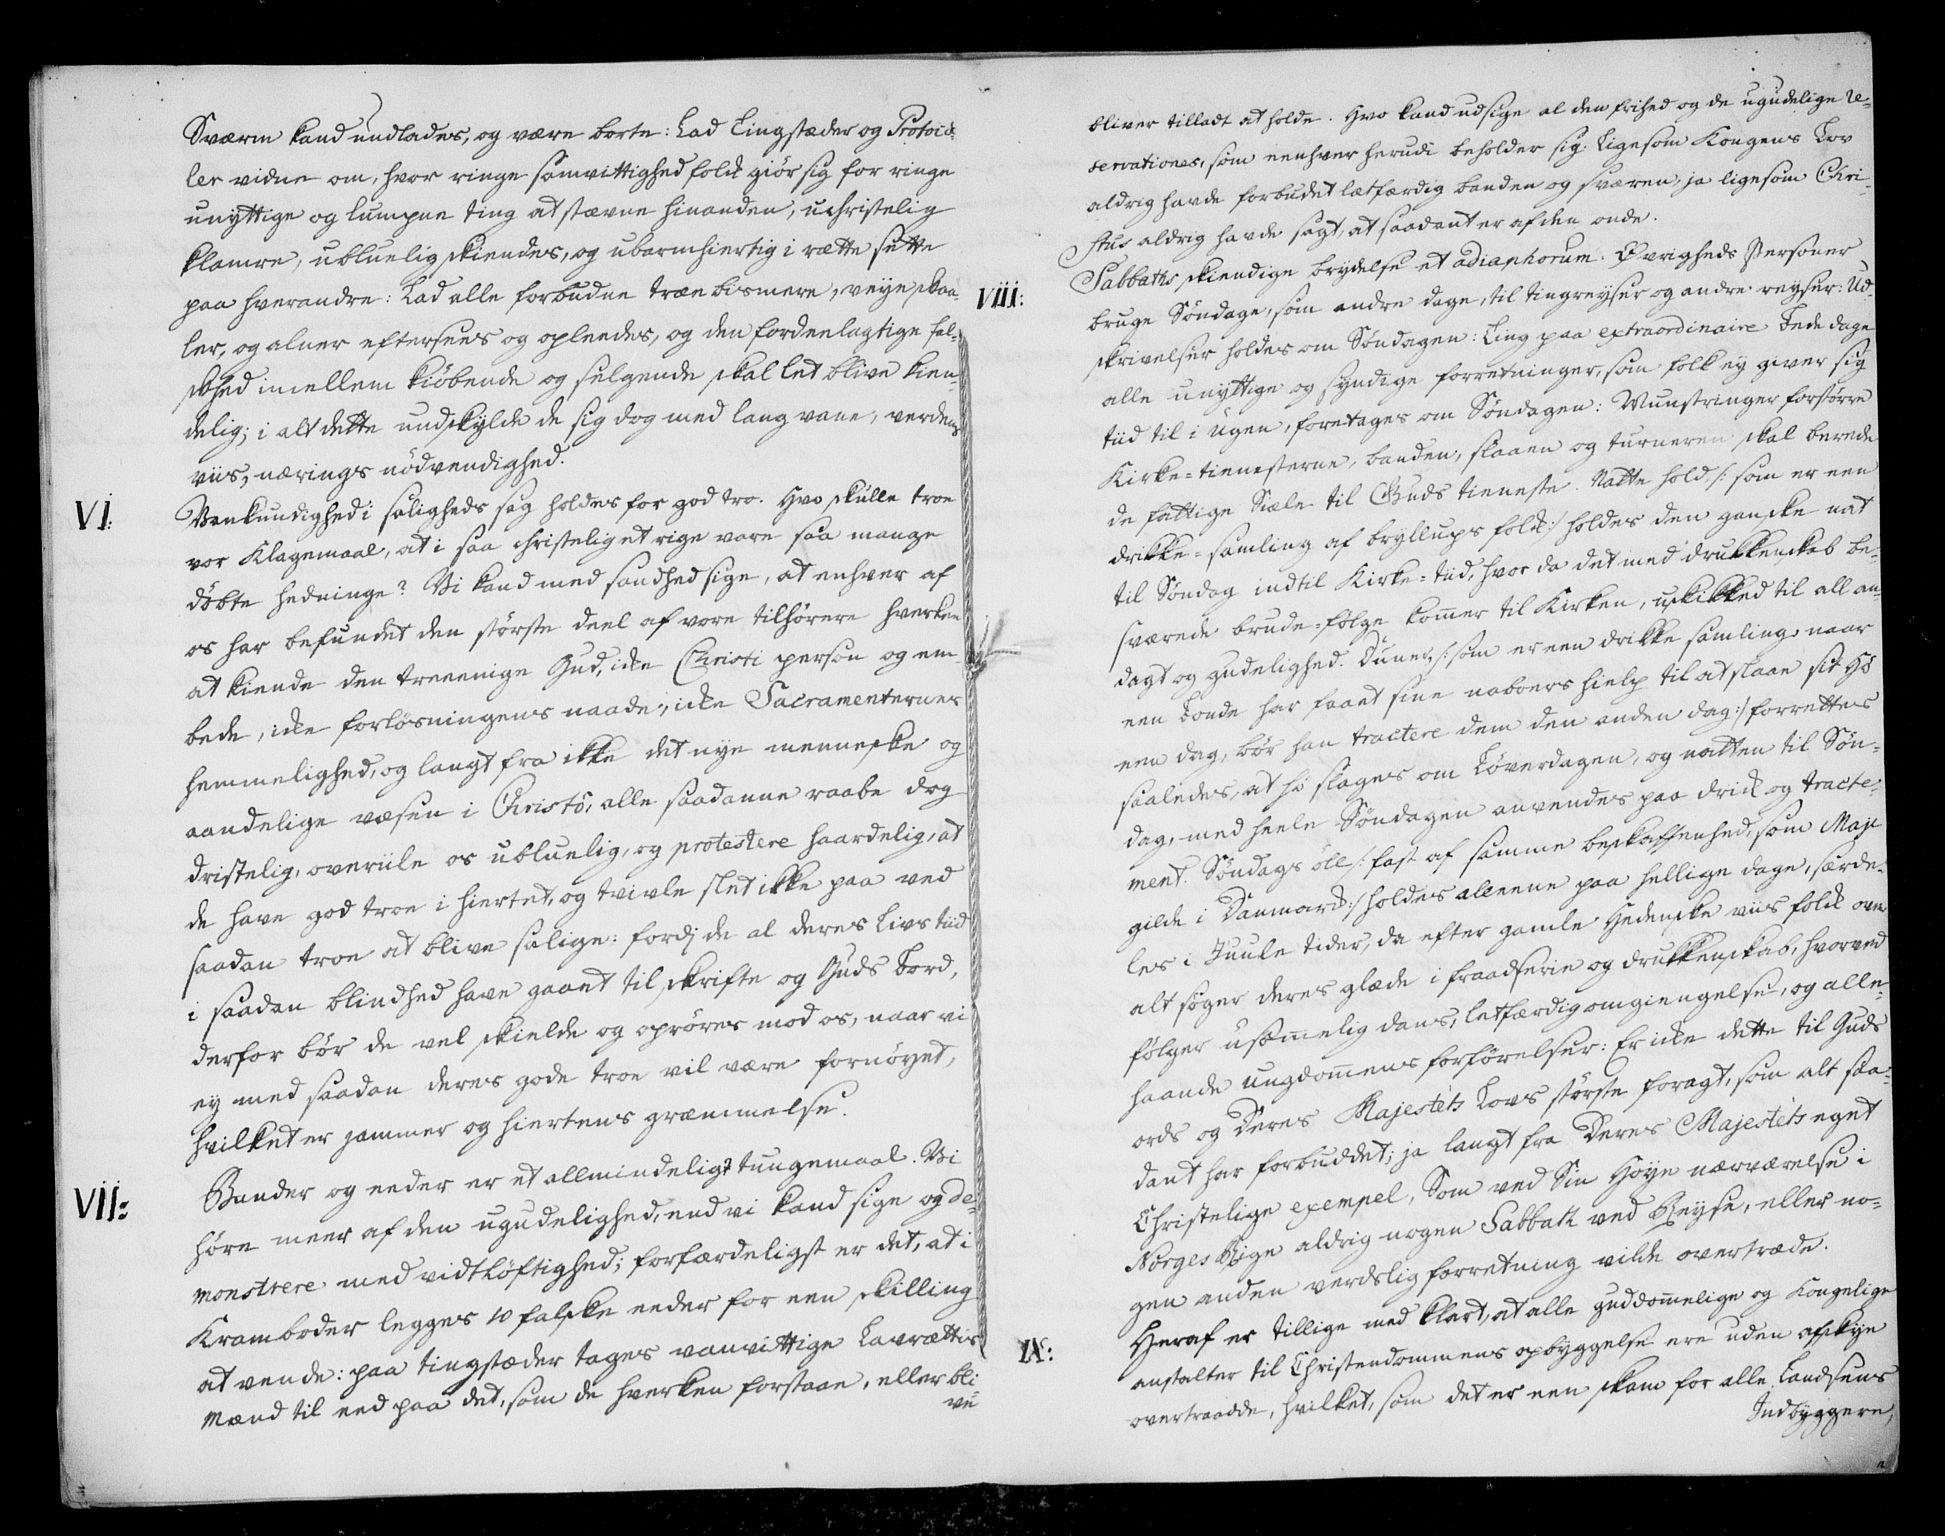 Sværm kand undlades, og være borte: Lad Tingstæder og Protocol
ler vidne om, hvor ringe samvittighed folck giör sig for ringe
unyttige og lumpne ting at stævne hinanden, uchristelig
klamre, ubluelig skiendes, og ubarmhiertig i rætte sette
paa hverandre: Lad alle forbudne træe bismere, veyeskaa-
ler, og alner eftersees og opleedes, og den fordeelagtige fal-
skhed imellem kiöbende og selgende skal let blive kien-
delig; i alt dette undskylde de sig dog med lang vane, verdens
viis, nærings nödvendighed.
VI: Vankundighed i saligheds sag holdes for god tro. Hvo skulle troe
vor Klagemaal, at i saa christeligt et rige vare saa mange
döbte hedninge? Vi kand med sandhed sige, at enhver af
os har befundet den störste deel af vore tilhörere hverken
at kiende den treeenige Gud, icke Christi person og em-
bede, icke forlösningens naade, icke Sacramenternes
hemmelighed, og langt fra ikke det nye menneske og
aandelige væsen i Christo, alle saadanne raabe dog
dristelig, overiile os ubluelig, og protestere haardelig, at
de have god troe i hiertet, og tvivle slet ikke paa ved
saadan troe at blive salige: fordj de al deres Livs tiid
i saadan blindhed have gaaet til skrifte og Guds bord,
derfor bör de vel skielde og opröres mod os, naar vi
ey med saadan deres gode troe vil være fornöyet,
hvilket er jammer og hiertens græmmelse.
VII: Bander og eeder er et allmindeligt tungemaal. Vi
höre meer af den ugudelighed, end vi kand sige og de-
monstrere med vidtlöftighed; forfærdeligst er det, at i
Kramboder legges 10 falske eeder for een skilling
at vende: paa tingstæder tages vanvittige Lavrættis
Mænd til eed paa det, som de hverken forstaae, eller bli
ve
bliver tilladt at holde. Hvo kand udsige al den frihed og de ugudelige re-
servationes, som eenhver herudi beholder sig. Ligesom Kongens Lov
aldrig havde forbudet letfærdig banden og sværen, ja ligesom Chri-
stus aldrig havde sagt, at saadant er af den onde.
VIII: Sabbaths skiendige brydelse et adiaphorum. Övrigheds Personer
bruge Söndage, som andre dage, til tingreyser og andre reyser: Ud-
skrivelser holdes om Söndagen: Ting paa extraordinaire bede dage
alle unyttige og syndige forretninger, som folk ey giver sig
tiid til i Ugen, foretages om Söndagen: Munstringer forstörre
Kirke-tienesterne, banden, slaaen og turneren skal berede
de fattige Siæle til Guds tieneste. Natte hold /: som er een
drikke-samling af bryllups folck :/ holdes den ganske nat
til Söndag indtil Kirke-tiid, hvor da det med drukkenskab be-
sværede brude-fölge kommer til Kirken, uskikked til all an-
dagt og gudelighed. Duner, /: som er een drikke samling, naar
een bonde har faaet sine naboers hielp til at slaae sit Hö
een dag, bör han tractere dem den anden dag :/ forrettes
saaledes, at hö slages om Löverdagen, og natten til Sön-
dag, med heele Söndagen anvendes paa drick og tracte-
ment. Söndags öll /: fast af samme beskaffenhed, som Maji
gilde i Danmarck :/ holdes alleene paa hellige dage, særde-
les i Juule tider, da efter gamle Hedenske viis folck over
alt söger deres glæde i fraadserie og drukkenskab, hvorved
fölger usömmelig dans, letfærdig omgiengelse, og alle-
haande ungdommens forförelser: Er icke dette til Guds
ords og Deres Majestets Lovs störste foragt, som alt saa-
dant har forbuddet; ja langt fra Deres Majestets eget
Christelige exempel, Som ved Sin Höye nærværelse i
Norges Rige aldrig nogen Sabbath ved Reyse, eller no-
gen anden verdslig forretning vilde overtræde.
IX: Heraf er tillige med klart, at alle guddommelige og Kongelige
anstalter til Christendommens opbyggelse ere uden afskye
overtraadde, hvilket, som det er een skam for alle Landsens
Indbyggere,